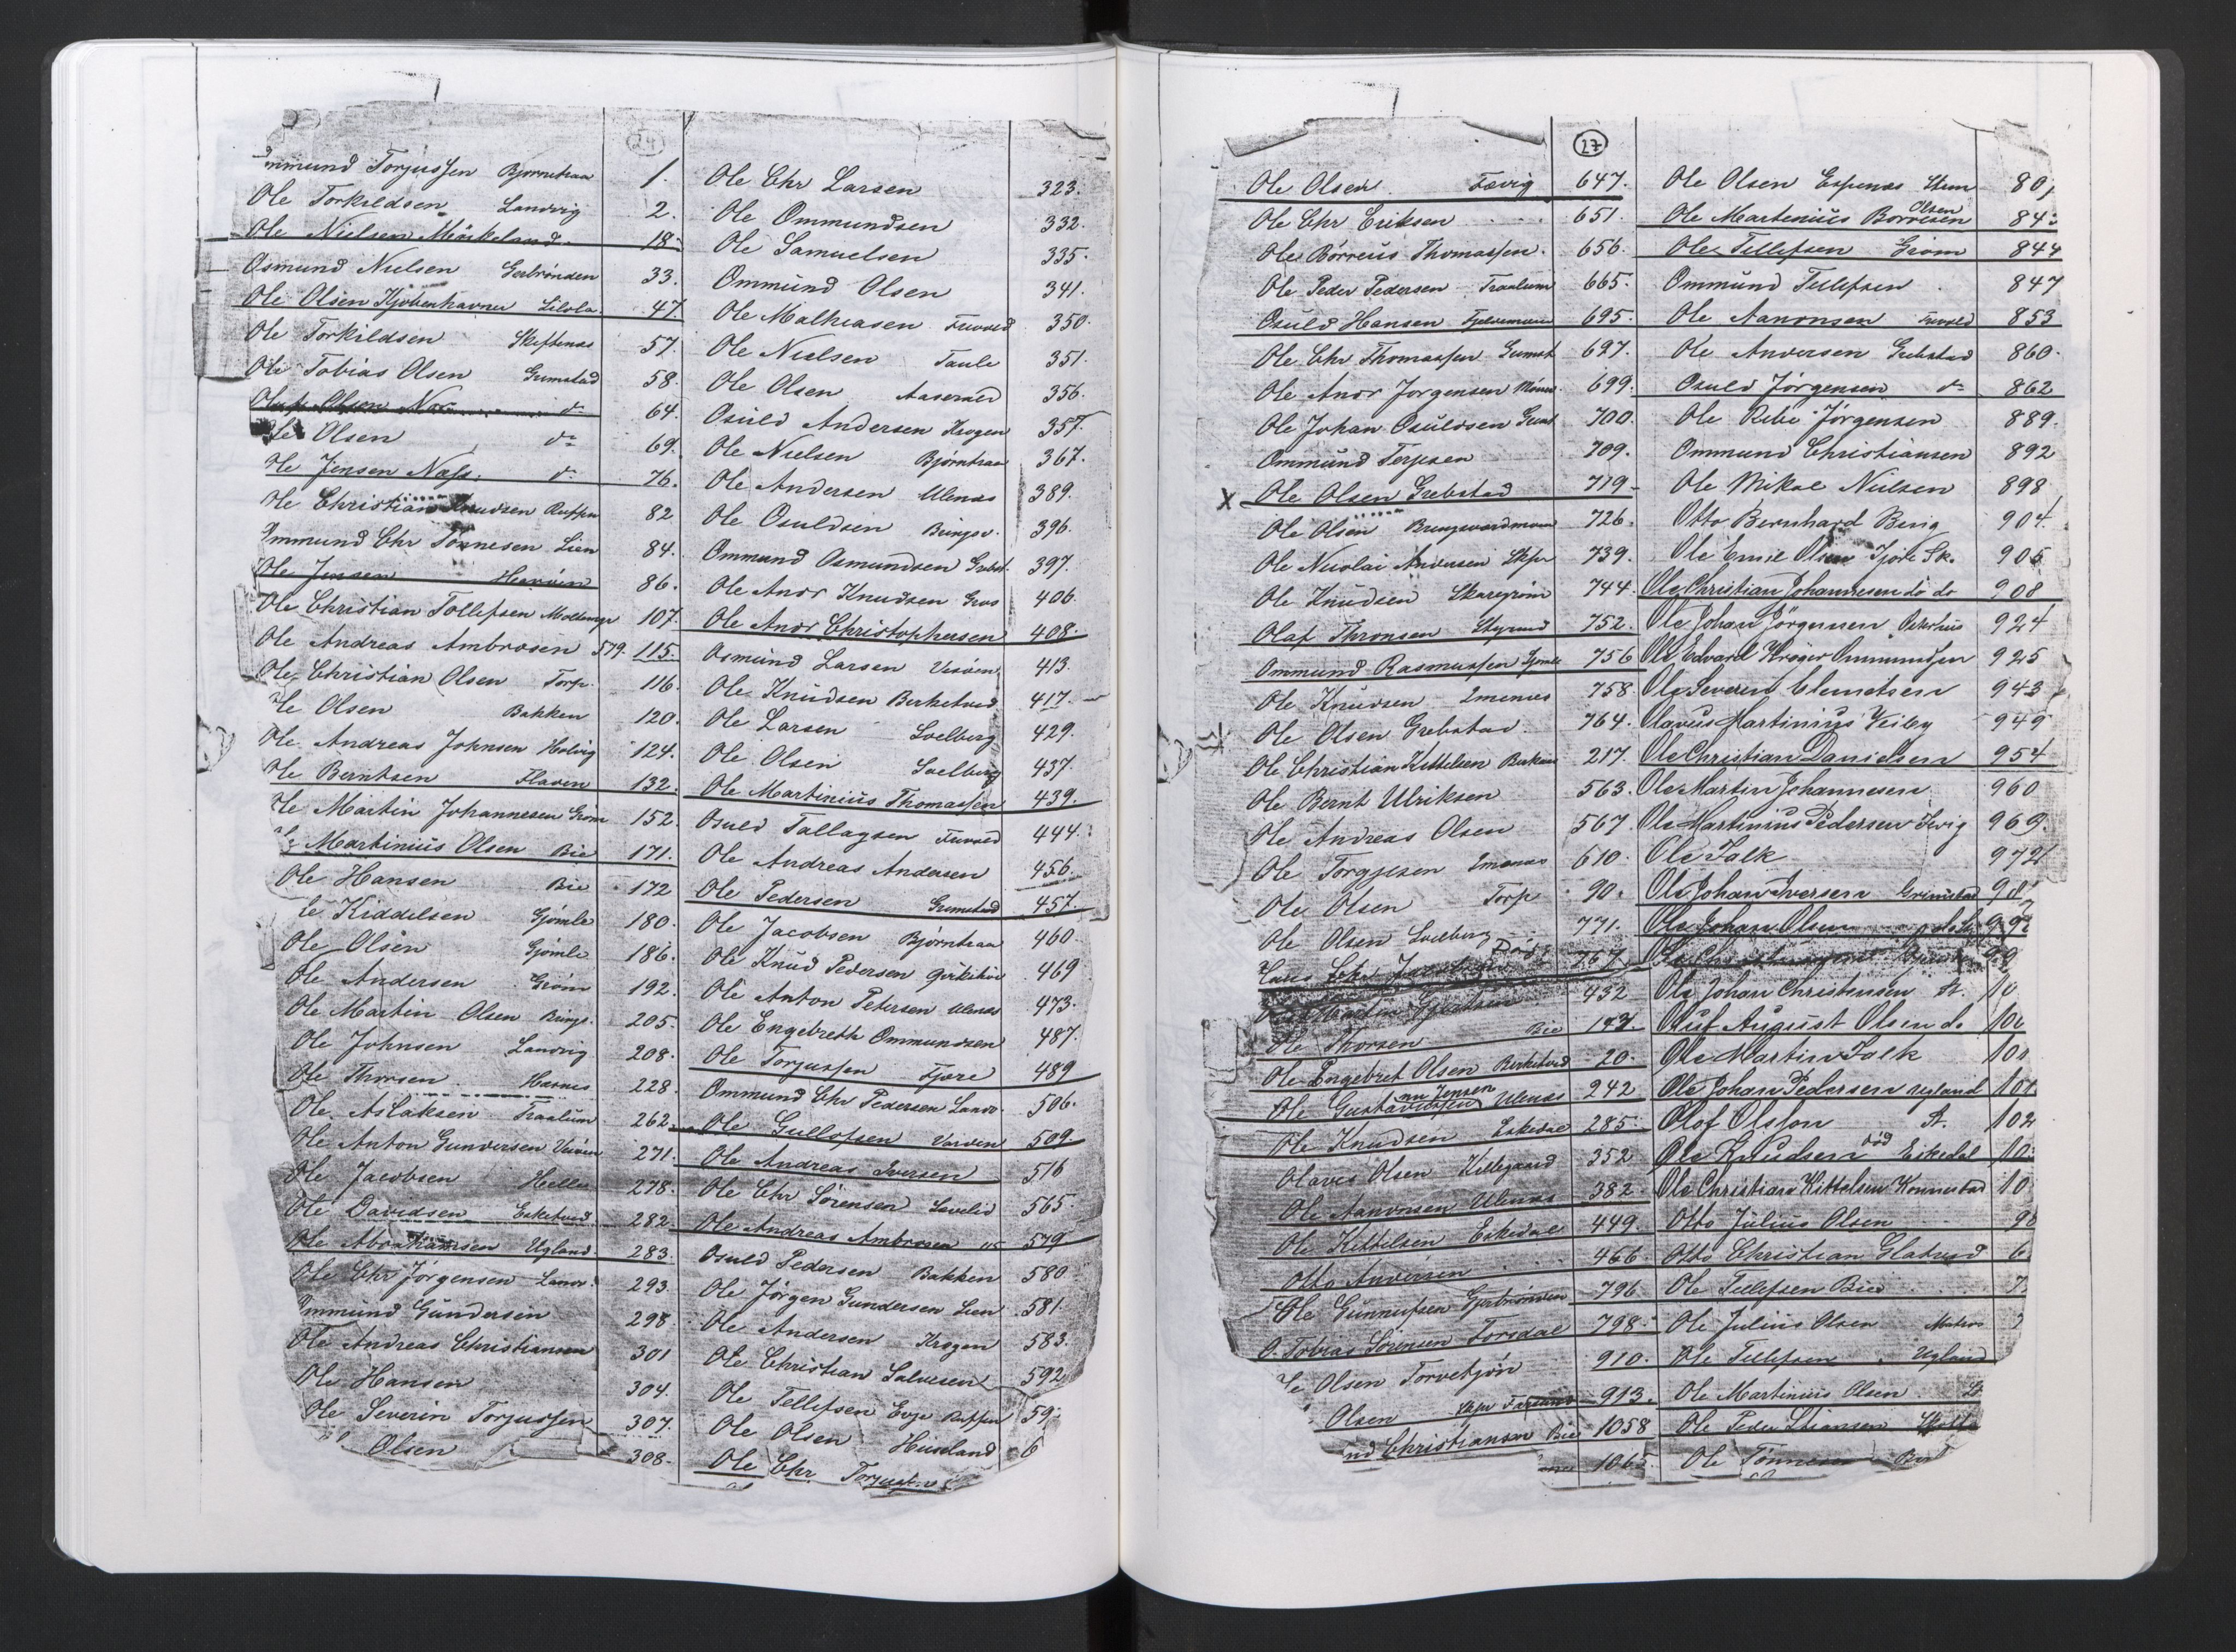 24
mmund Torjussen Bjorntraa 1.
Ole Torkildsen Landvig 2.
Ole Nielsen Mörkeland 18
Osmund Nielsen Gerbrönden 33.
Ole Olsen Kjobenhavner Lilola 47.
Ole Torkildsen Skiftenas 57.
Ole Tobias Olsen Grimstad 58.
Olsen do 64.
Ole Olsen do 69.
Ole Jensen Næss. do 76.
Ole Christian Knudsen 82
Ommund Chr Tönnesen Lien 84.
Ole Jensen 86.
Ole Christian Tollefsen 107.
Ole Andreas Ambrosen 579. 115.
Ole Christian Olsen Torp. 116.
Ole Olsen Bakken 120.
Ole Andreas Johnsen Holvig 124.
Ole Berntsen Flaven 132.
Ole Martin Johannesen Gröm 152.
Martinius Olsen Bie 171.
Ole Hansen Bie 172
Ole Kiddelsen Gjömle 180.
Ole Olsen Gjömle 186.
Ole Andersen Gröm 192.
Ole Martin Olsen Bings. 205.
Ole Johnsen Landvig 208.
Ole Thorsen Hesnes 228.
Ole Aslaksen Traalum 262.
Ole Anton Gundersen 271.
Ole Jacobsen Helle 278.
Ole Davidsen Esketved 282.
Ole Abrahamsen Ugland 283.
Ole Chr Jörgensen Landv. 293.
Ommund Gundersen 298.
Ole Andreas Christiansen 301
Ole Hansen 304.
Ole Severin Torjussen 307.
Olsen 308.
Ole Chr Larsen 323.
Ole Ommundsen 332.
Ole Samuelsen 335.
Ommund Olsen 341.
Ole Mathiasen Fuvold 350.
Ole Nielsen Taule 351.
Ole Olsen 356.
Osuld Andersen Krogen 357.
Ole Nielsen Bjørntraa 367.
Ole Andersen Ulenes 389.
Ole Osuldsen Bringsv. 396.
Ommund Osmundsen Grebst. 397.
Ole Andr Knudsen Groos 406.
Ole Andr Christophersen 408.
Osmund Larsen 413.
Ole Knudsen Berketved 417.
Ole Larsen Soelberg 429.
Ole Olsen Soelberg 437.
Ole Martinius Thomassen 439.
Osuld Tallagsen Fuvold 444.
Ole Andreas Andersen 456.
Ole Pedersen Grimstad 457.
Ole Jacobsen Bjørntraa 460.
Ole Knud Pedersen 469
Ole Anton Petersen Ulenes 473.
Ole Engebreth Ommundsen 487.
Ole Torjussen Fjære 489
Ommund Chr Pedersen Landv. 506.
Ole Gullofsen Varden 509.
Ole Andreas Iversen 516
Ole Chr Sörensen Savelid 565.
Ole Andreas Ambrosen 115 579
Osuld Pedersen Bakken 580
Ole Jörgen Gundersen Lien 581.
Ole Andersen Krogen 583.
Ole Christian Salvesen 592
Ole Tellefsen Evje 59
Ole Olsen Huseland 6
Ole Chr Torjussen
27
Ole Olsen Fævig 647.
Ole Chr Eriksen 651.
Ole Börreus Thomassen. 656.
Ole Peder Pedersen Traalum 665.
Osuld Hansen 695.
Ole Chr Thomassen Grimst 697.
Ole Andr Jorgensen 699.
Ole Johan Osuldsen Grimst 700.
Ommund Terjesen 709.
X Ole Olsen Grebstad 719
Ole Olsen 726.
Ole Nicolai Andersen Skfr 739.
Ole Knudsen Skaregröm 744.
Olaf Thronsen 752.
Ommund Rasmussen Gjömle 756
Ole Knudsen Imenes 758.
Ole Olsen Grebstad 764.
Ole Christian Kittelsen 217.
Ole Bernt Ulriksen 563.
Ole Andreas Olsen 567.
Ole Torgjesen Imenes 610.
Ole Olsen Torp 90.
Ole Olsen Soelberg 771.
Chr Död 767
432
Ole Thorsen Bie 143.
Ole Engebret Olsen Berketved 20.
nu Jensen
Ole Gustavussen Ulenes 242
Ole Knudsen Eskedal 285.
Olaves Olsen Killegaard 352
Ole Aanonsen Ulenes 382.
Ole Kittilsen Eskedal 449.
Otto Andersen 466.
Ole Gunnufsen Gjerbrönden 796
O. Tobias Sörensen Torsdal 798
Ole Olsen Torvekjön 910.
Olsen Skfr Farsund 913.
nd Christiansen Bie 1058
1065.
Ole Olsen Espenes 80
Olsen
Ole Martenius Borresen 84
Ole Tellefsen Gröm 844
Ommund Tellefsen 847
Ole Aanonsen Fuvold 853
Ole Andersen Grebstad 860.
Osuld Jörgensen do 862
Ole Rebi Jörgensen 889.
Ommund Christiansen 892
Ole Mikal Nielsen 898
Otto Bernhard Berig 904.
Ole Emil Olsen Fjöre Sk. 905
Ole Christian Johannesen do do 908
Ole Johan Jörgensen 924
Ole Edvard Kröger Ommundsen 925
Ole Severin Clemetsen 943
Olavus Martinius Veiby 949
Ole Christian Danielsen 954
Ole Martin Johannesen 960
Ole Martinius Pedersen Fevig 969.
Ole Falk 972
Ole Johan Iversen Grimstad 98
Ole Johan Olsen 992
Ole Johan Christensen A. 10
Oluf August Olsen do 100
Ole Martin Falk 101
Ole Johan Pedersen Ugland 101
Olof Olsson A. 102
död
Ole Knudsen Eskedal 10
Ole Christian Kittelsen Konnestad 10
Otto Julius Olsen 90
Otto Christian Glatved 6
Ole Tellefsen Bie 7
Ole Julius Olsen Matros 7
Ole Tellefsen Ugland
Ole Martinius Olsen
Ole Peder Stiansen
Ole Tönnesen